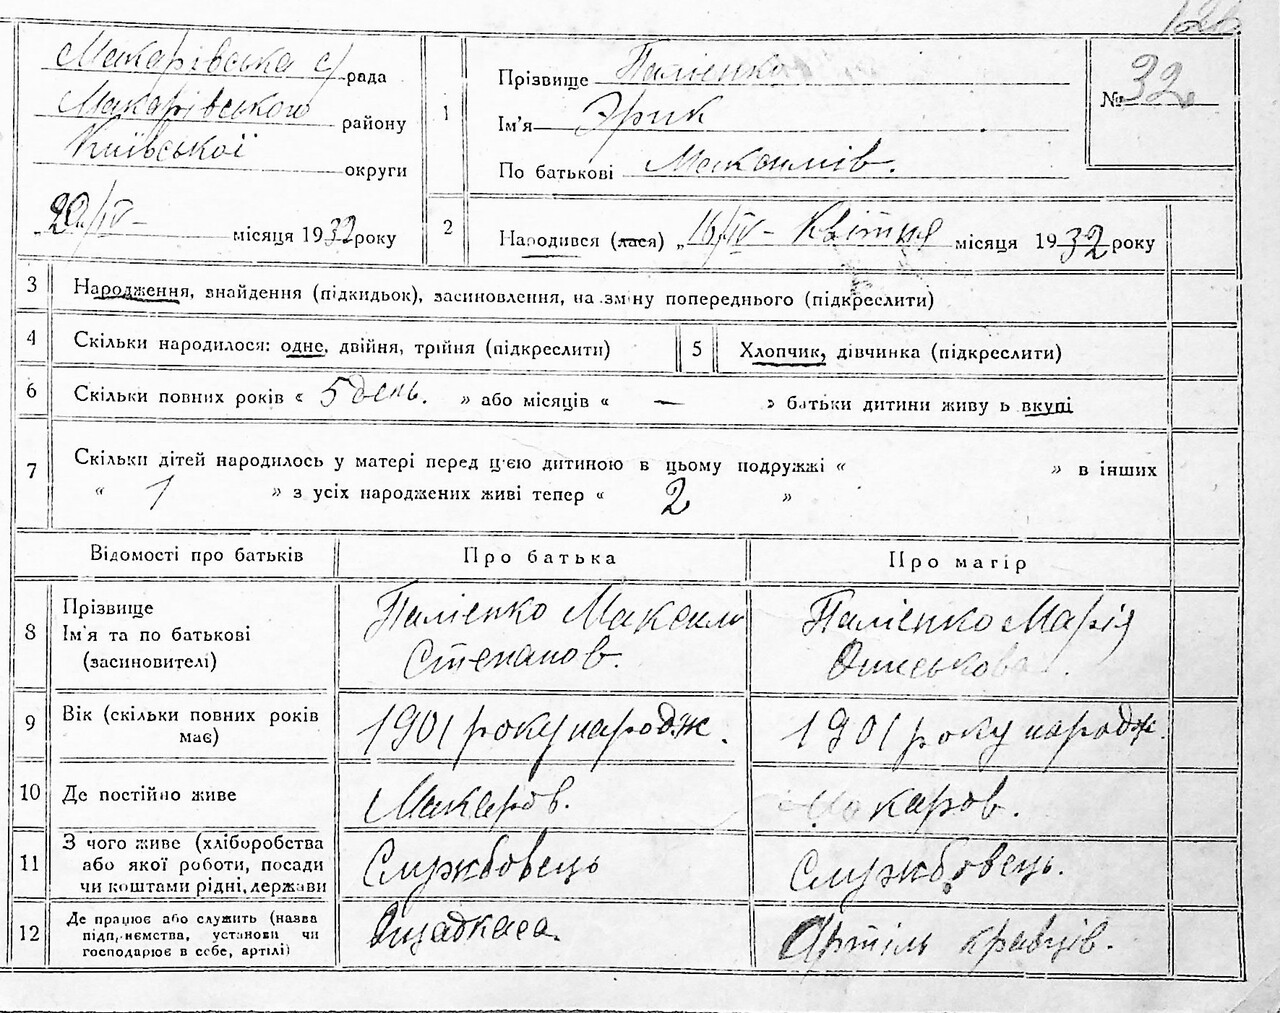 Макарівська с/рада
Макарівського району
Київської округи
20/IV- місяця 1932 року
1
Прізвище Палієнко
Ім'я Эрик
По батькові Максимів.
№ 32
2
Народився (лася) „16/IV- Квітня місяця 1932 року
3 Народження, знайдення (підкидьок), засиновлення, на зміну попереднього (підкреслити)
4 Скільки народилося: одне, двійня, трійня (підкреслити)
5 Хлопчик, дівчинка (підкреслити)
6 Скільки повних років « 5 день. » або місяців « — » батьки дитини живуть вкупі
7 Скільки дітей народилось у матері перед цією дитиною в цьому подружжі « » в інших
« 1 » з усіх народжених живі тепер « 2 »
Відомості про батьків Про батька Про матір
8 Прізвище
Ім'я та по батькові
(засиновителі)
Палієнко Максим
Степанов.
Палієнко Марія
9 Вік (скільки повних років
має)
1901 року народж.
1901 року народж.
10 Де постійно живе Макаров. Макаров.
11 З чого живе (хліборобства
або якої роботи, посади
чи коштами рідні, держави
Службовець
Службовець.
12 Де працює або служить (назва
підприємства, установи чи
господарює в себе, артілі)
Ощадкаса.
Артіль кравців.